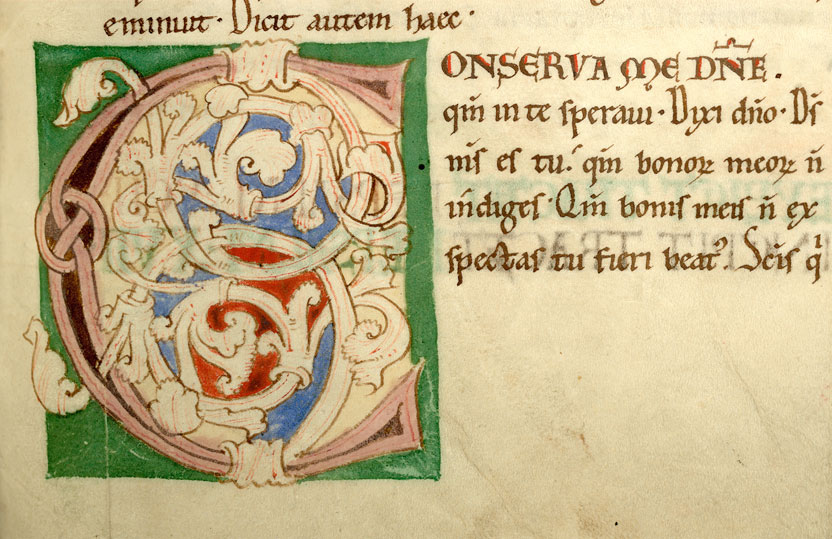 eminuit · Dicit autem haec ·
CONSERVA ME DÑE .
qm̄ in te speraui · Dixi dño · Ds̄
m̄s es tu. qm̄ bonoꝝ meoꝝ ñ
indiges · Qm̄ bonis meis ñ ex
spectas tu fieri beat᷒. Scis q